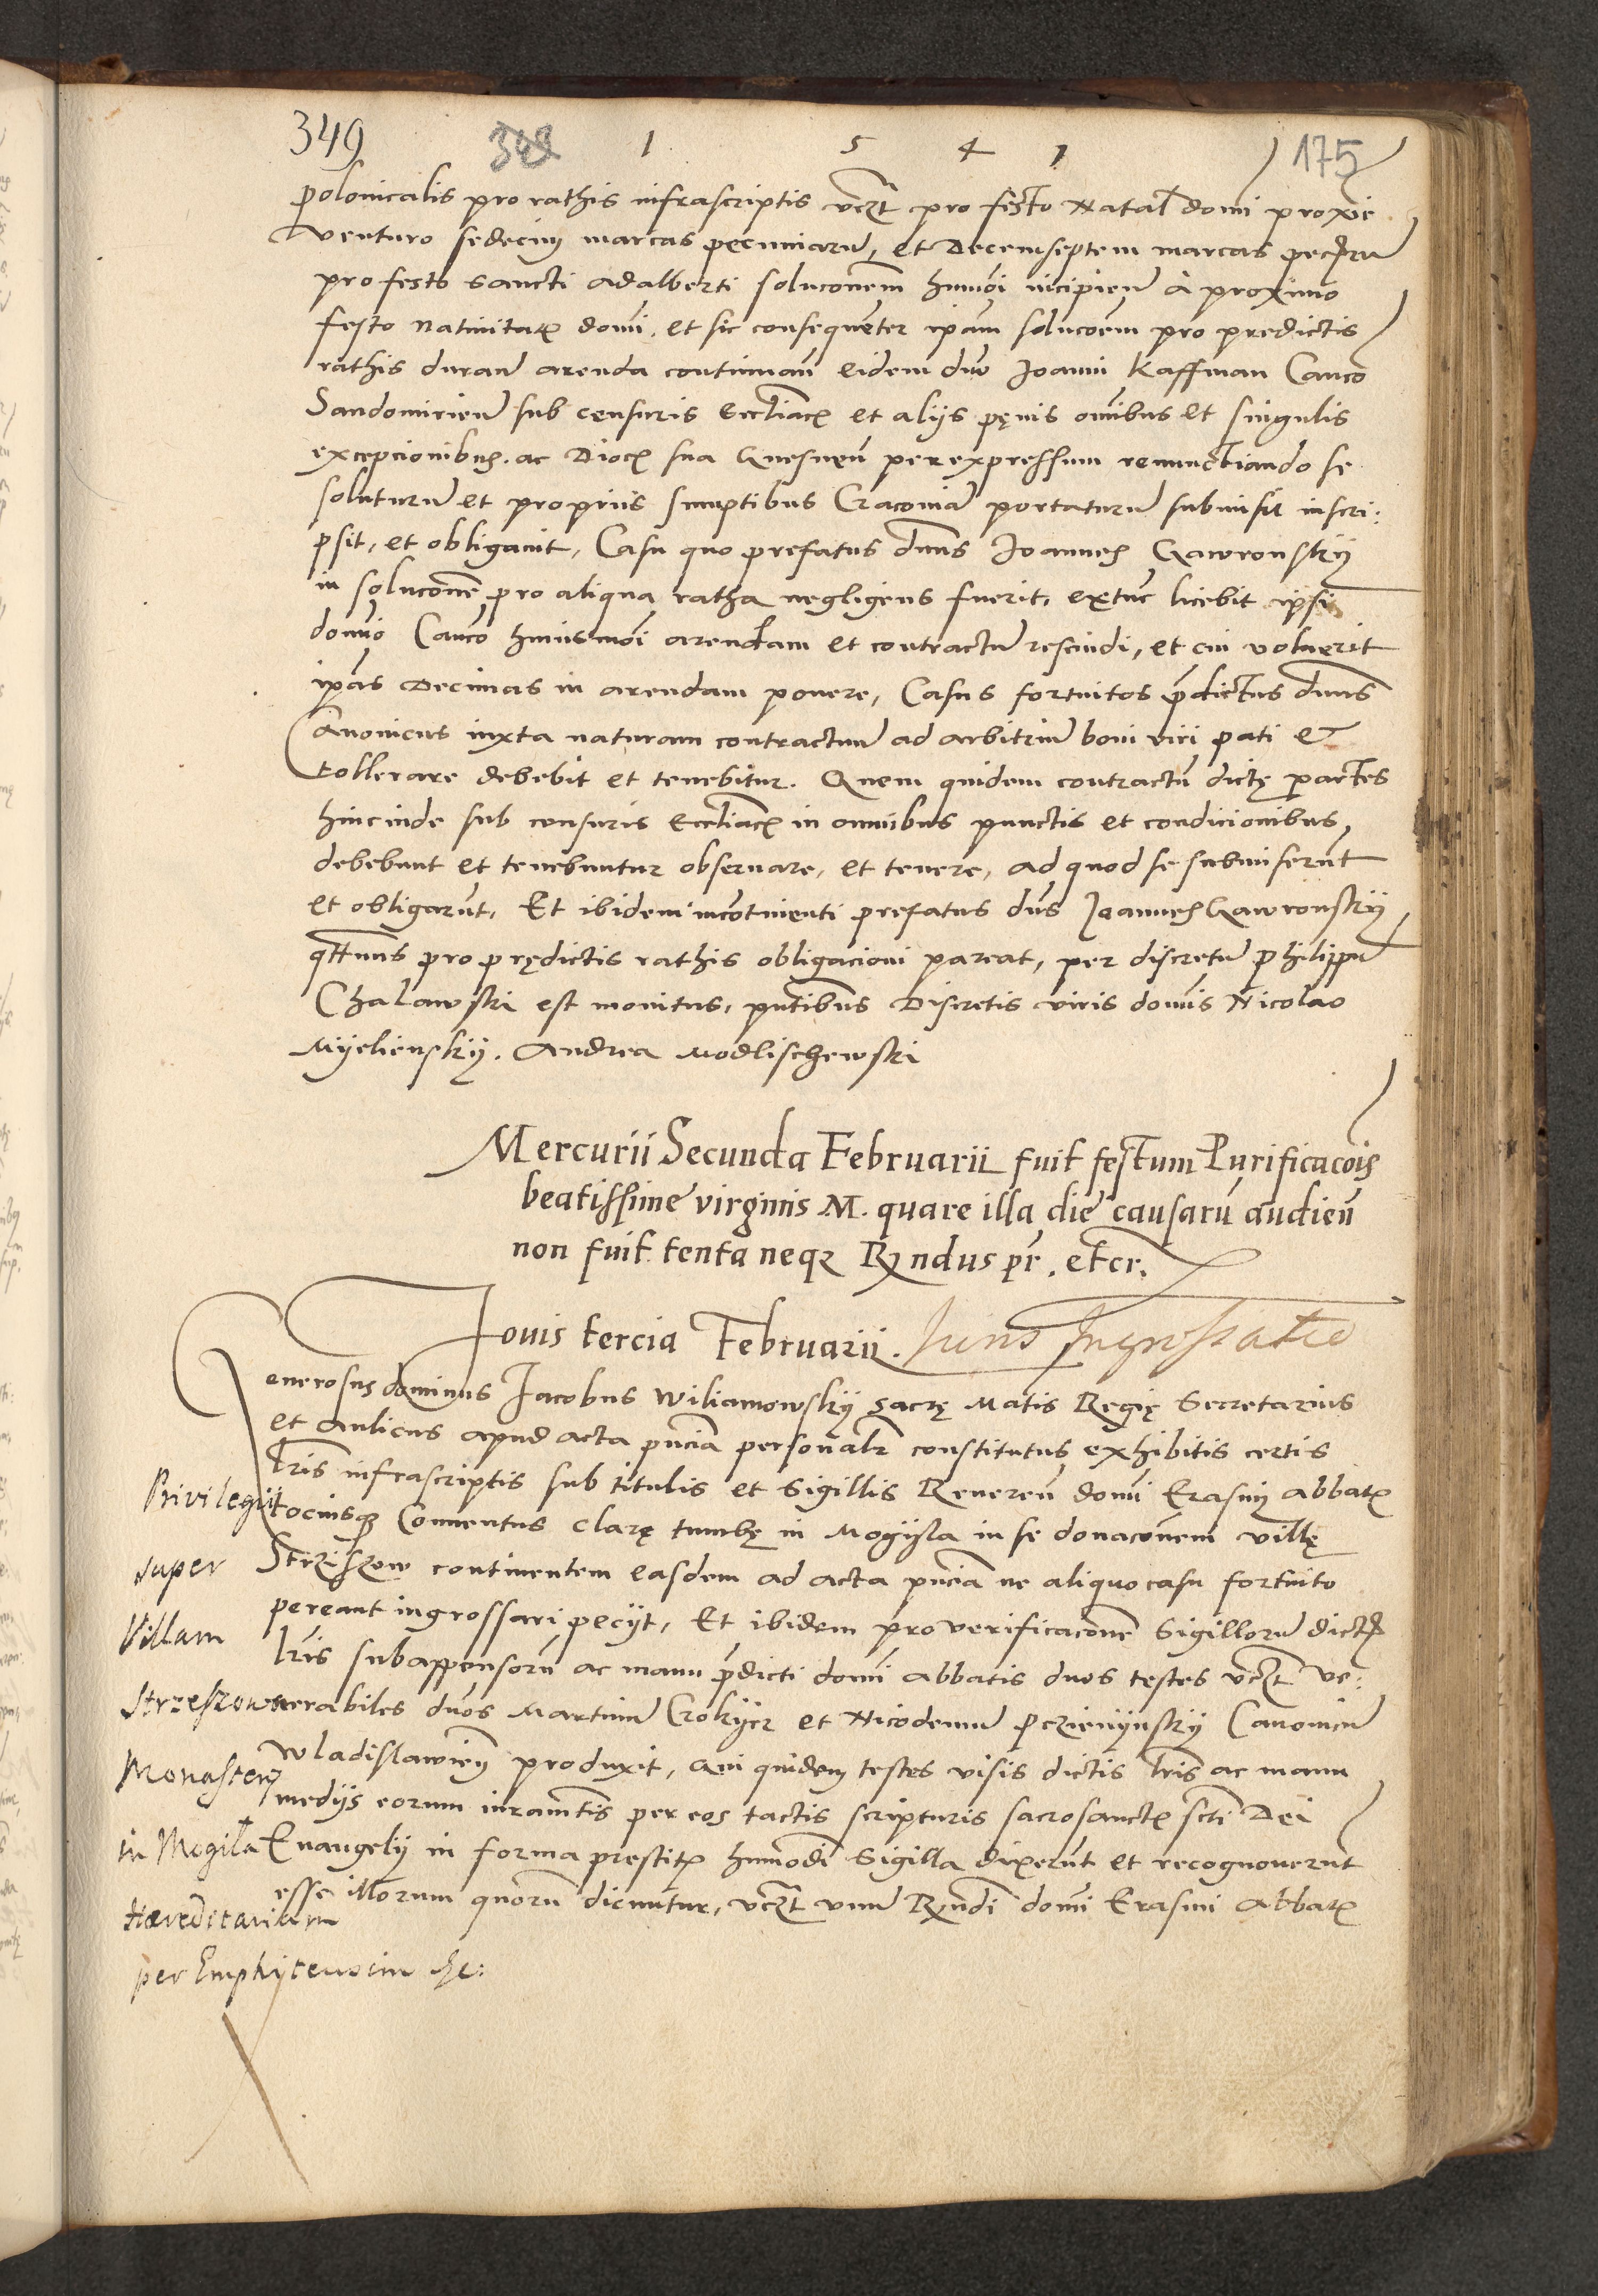 349 348 1 5 4 1 175
polonicalis pro rathis infrascriptis vczt pro festo Natal domi proxie
venturo sedecim marcas pecuniaru, et Decemseptem marcas pecru
pro festo Sancti Adalberti soluconem humoi incipien à proximo
festo natiuitatz domi. et sic consequenter ipam solucoem pro predictis
rathis duran arenda continuan eidem dno Joanni Kaffman Canco
Sandomirien sub censuris Eccliacz et alijs pęnis omibus et singulis
excepcionibus. ac Diocz sua Gnesnen per expressum renunctiando se
soluturu et proprijs sumptibus Cracouia portaturu submisit inscri:
psit, et obligauit, Casu quo prefatus dnus Joannes Gawronskÿ
in solucone pro aliqua ratha negligens fuerit, extunc licebit ipsi
domio Canco huiusmoi arendam et contractu rescindi, et cui voluerit
ipas Decimas in arendam ponere, Casus fortuitos pdictus dnus
Canonicus iuxta naturam contractuu ad arbitriu boni viri pati et
tollerare debebit et tenebitur. Quem quidem contractu dictę partes
hincinde sub censuris Eccliacz in omnibus punctis et condicionibus
debebunt et tenebuntur obseruare, et tenere, ad quod se submiserut
et obligarut, Et ibidem incontinenti prefatus dus Joannes Gawronskÿ
qttenus pro prędictis rathis obligacioni pareat, per discretu Philippu
Chalawski est monitus, pntibus Discretis viris domis Nicolao
Mÿelienskÿ. Andrea Modlischewski
Mercurii Secunda Februarii fuit festum Purificacois
beatissime virginis M. quare illa die causaru audien
non fuit tenta neqz Rndus pr. etcr.
Jouis tercia Februarii. Juris Ingrossatio
Generosus dominus Jacobus Wiliamowskÿ sacrę Matis Regię Secretarius
et Aulicus apud acta pncia personalr constitutus exhibitis certis
lris infrascriptis sub titulis et Sigillis Reueren domi Erasmi Abbatz
tociusqz Conuentus clarę tumbę in Mogÿla in se donaconem villę
Strziszow continentem easdem ad acta pncia ne aliquo casu fortuito
pereant ingrossari pecÿt, Et ibidem pro verificacone Sigilloru dict
lris subappensoru ac manu pdicti domi Abbatis duos testes vczt ve:
nerabiles dnos Martinu Crokÿer et Nicodemu Pczienÿnskÿ Canonicu
Wladislawien produxit, qui quidem testes visis dictis lris ac manu
medÿs eorum iuramtis per eos tactis scripturis sacrosanctz scti Dei
Euangelÿ in forma prestitz humodi Sigilla dixerut et recognouerut
esse illorum quoru dicuntur, vczt vnu Rndi domi Erasmi Abbatz
Privilegiu
super
Villam
Strzeszow
Monastery
in Mogila
Haereditarium
per Emphyteusim etc: